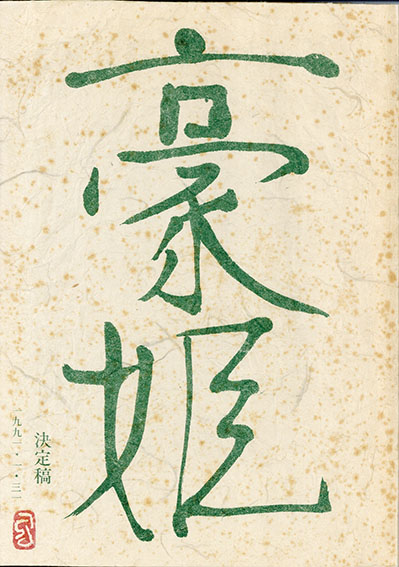 豪姫
決定稿
九九一・一・三一